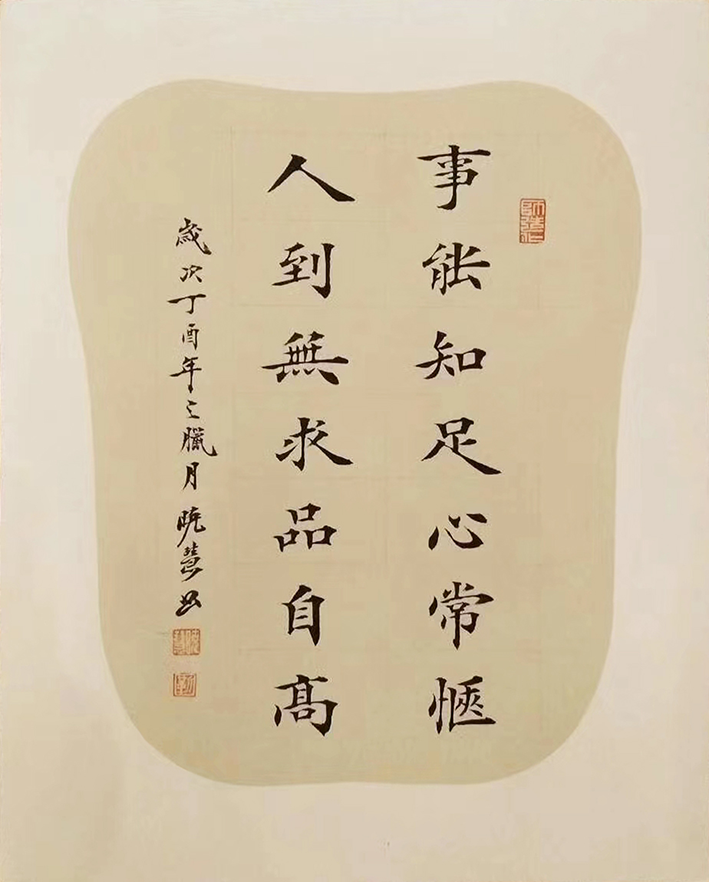 事能知足心常惬
人到無求品自高
歲次丁酉年之臘月曉慧書